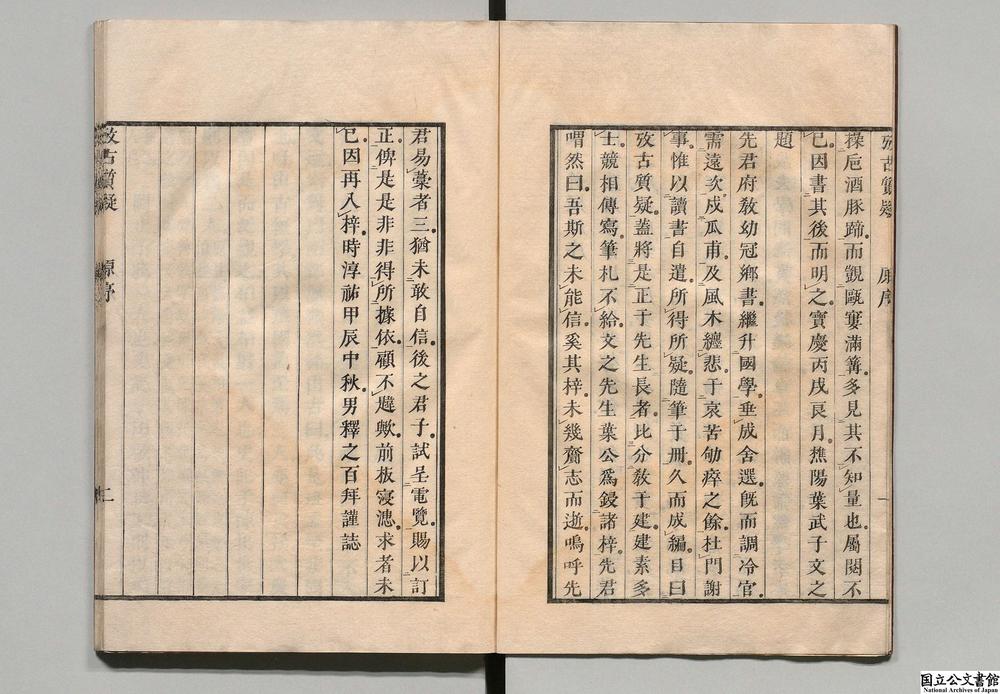 攷古質疑 原序 一
操巵酒豚蹄而覬甌窶滿篝多見其不知量也屬閱不
已因書其後而明之寶慶丙戌良月樵陽葉武子文之
題
先君府教幼冠鄉書繼升國學垂成舍選旣而調冷官
需遠次戍瓜甫及風木纏悲于哀苦劬瘁之餘杜門謝
事惟以讀書自遣所得所疑隨筆于冊久而成編目曰
攷古質疑蓋將是正于先生長者比分敎于建建素多
士競相傳寫筆札不給文之先生葉公爲鋟諸梓先君
喟然曰吾斯之未能信奚其梓未幾齎志而逝嗚呼先
君易藁者三猶未敢自信後之君子試呈電覽賜以訂
正俾是是非非得所據依顧不韙歟前板寖漶求者未
已因再入梓時淳祐甲辰中秋男釋之百拜謹誌
攷古質疑 原序 二
国立公文書館
National Archives of Japan